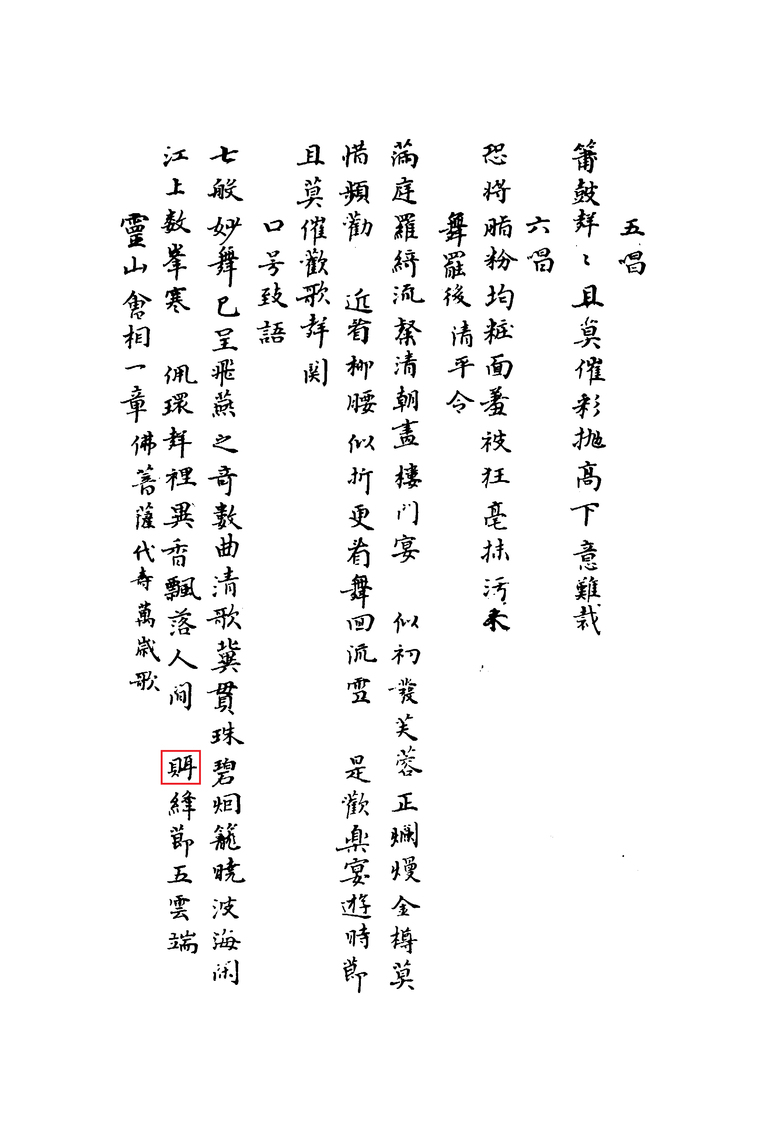 五唱
簫鼓聲〻且莫催彩抛高下意難裁
六唱
恐將脂粉均粧面羞被狂毫抹汚來
舞罷後清平令
滿庭羅綺流粲清朝畫樓門宴 似初發芙蓉正爛熳金樽莫
惜頻勸 近看柳腰似折更看舞回流雪 是歡樂宴遊時節
且莫催歡歌聲闋
口号致語
七般妙舞已呈飛燕之奇數曲清歌冀貫珠碧烟籠曉波海闲
江上数峯寒 佩環聲裡異香飄落人间 絳節五雲端
靈山會相一章佛菩薩代寿萬歲歌